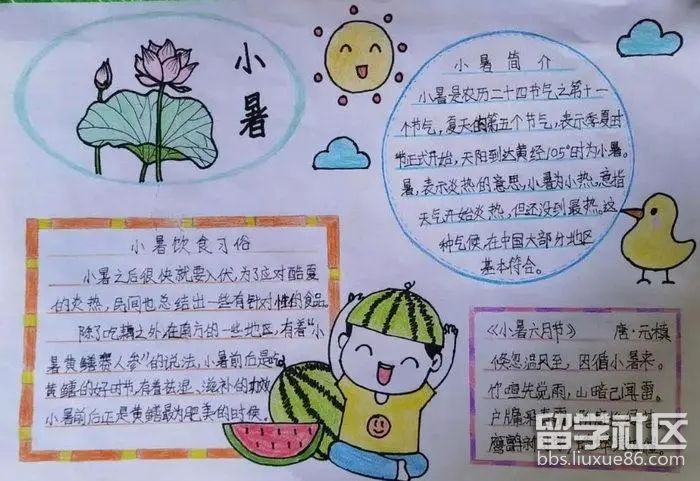 小暑
小暑简介
小暑是农历二十四节气之第十一
个节气，夏天的第五个节气，表示季夏时
节正式开始，天阳到达黄经105°时为小暑。
暑，表示炎热的意思，小暑为小热，意指
天气开始炎热，但还没到最热。这
种气候，在中国大部分地区
基本符合。
小暑饮食习俗
小暑之后很快就要入伏，为了应对酷夏
的炎热，民间也总结出一些有针对性的食品。
除了吃藕之外，在南方的一些地区，有着“小
暑黄鳝赛人参”的说法，小暑前后是吃
黄鳝的好时节，有着祛湿、滋补的功效
小暑前后正是黄鳝最为肥美的时候。
《小暑六月节》 唐·元稹
倏忽温风至，因循小暑来。
竹喧先觉雨，山暗已闻雷。
户牖
鹰鹯新
留学社区
bbs.liuxue86.com